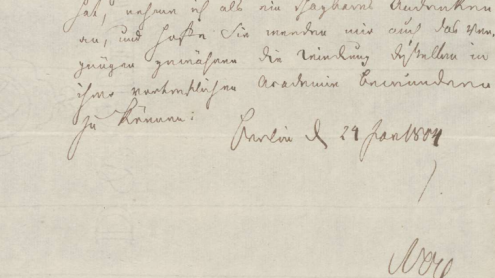 hat, nehme ich als ein schätzbares Andenken
an, und hoffe Sie werden mir auch das Ver-
gnügen gewähren die desselben in
ihrer vortrefflichen Academie bewundern
zu können:
Berlin d 24 Jan 1804